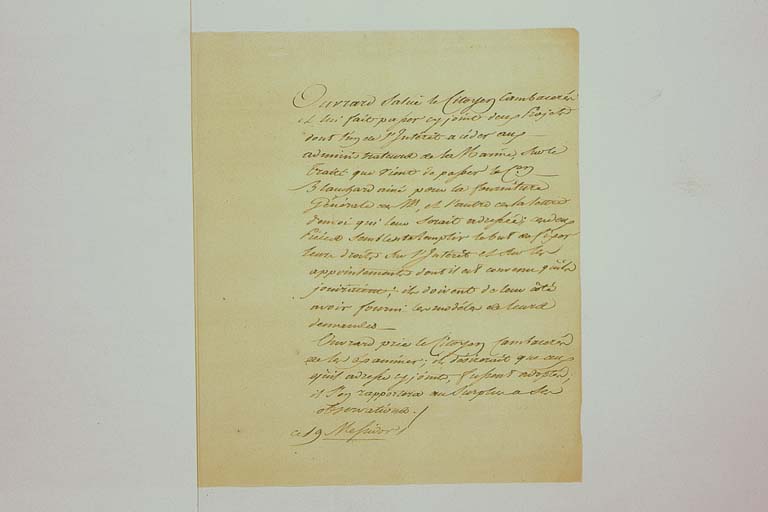 Ouvrard salue le Citoyen Cambacérès
et lui fait passer cy joint deux Projets
dont l'un de l'Interêt a céder aux
administrateurs de la Marine, sur le
Traité que vient de passer le Cen
Blanchard ainé pour la fourniture
Générale de et l'autre de la lettre
d'envoi qui leur serait adressée; ces deux
Pièces semblent remplir le but de fixer
leurs droits sur l'Interêt et sur les
appointements dont il est convenu qu'ils
jouiraient; ils doivent de leur côté
avoir fourni les modèles de leurs
demandes
Ouvrard prie le Citoyen Cambacérès
de les examiner; il désirerait que ceux
qu'il adresse cy joint, fussent adoptés,
il s'en rapportera au Surplus a ses
observations.
ce 19 Messidor